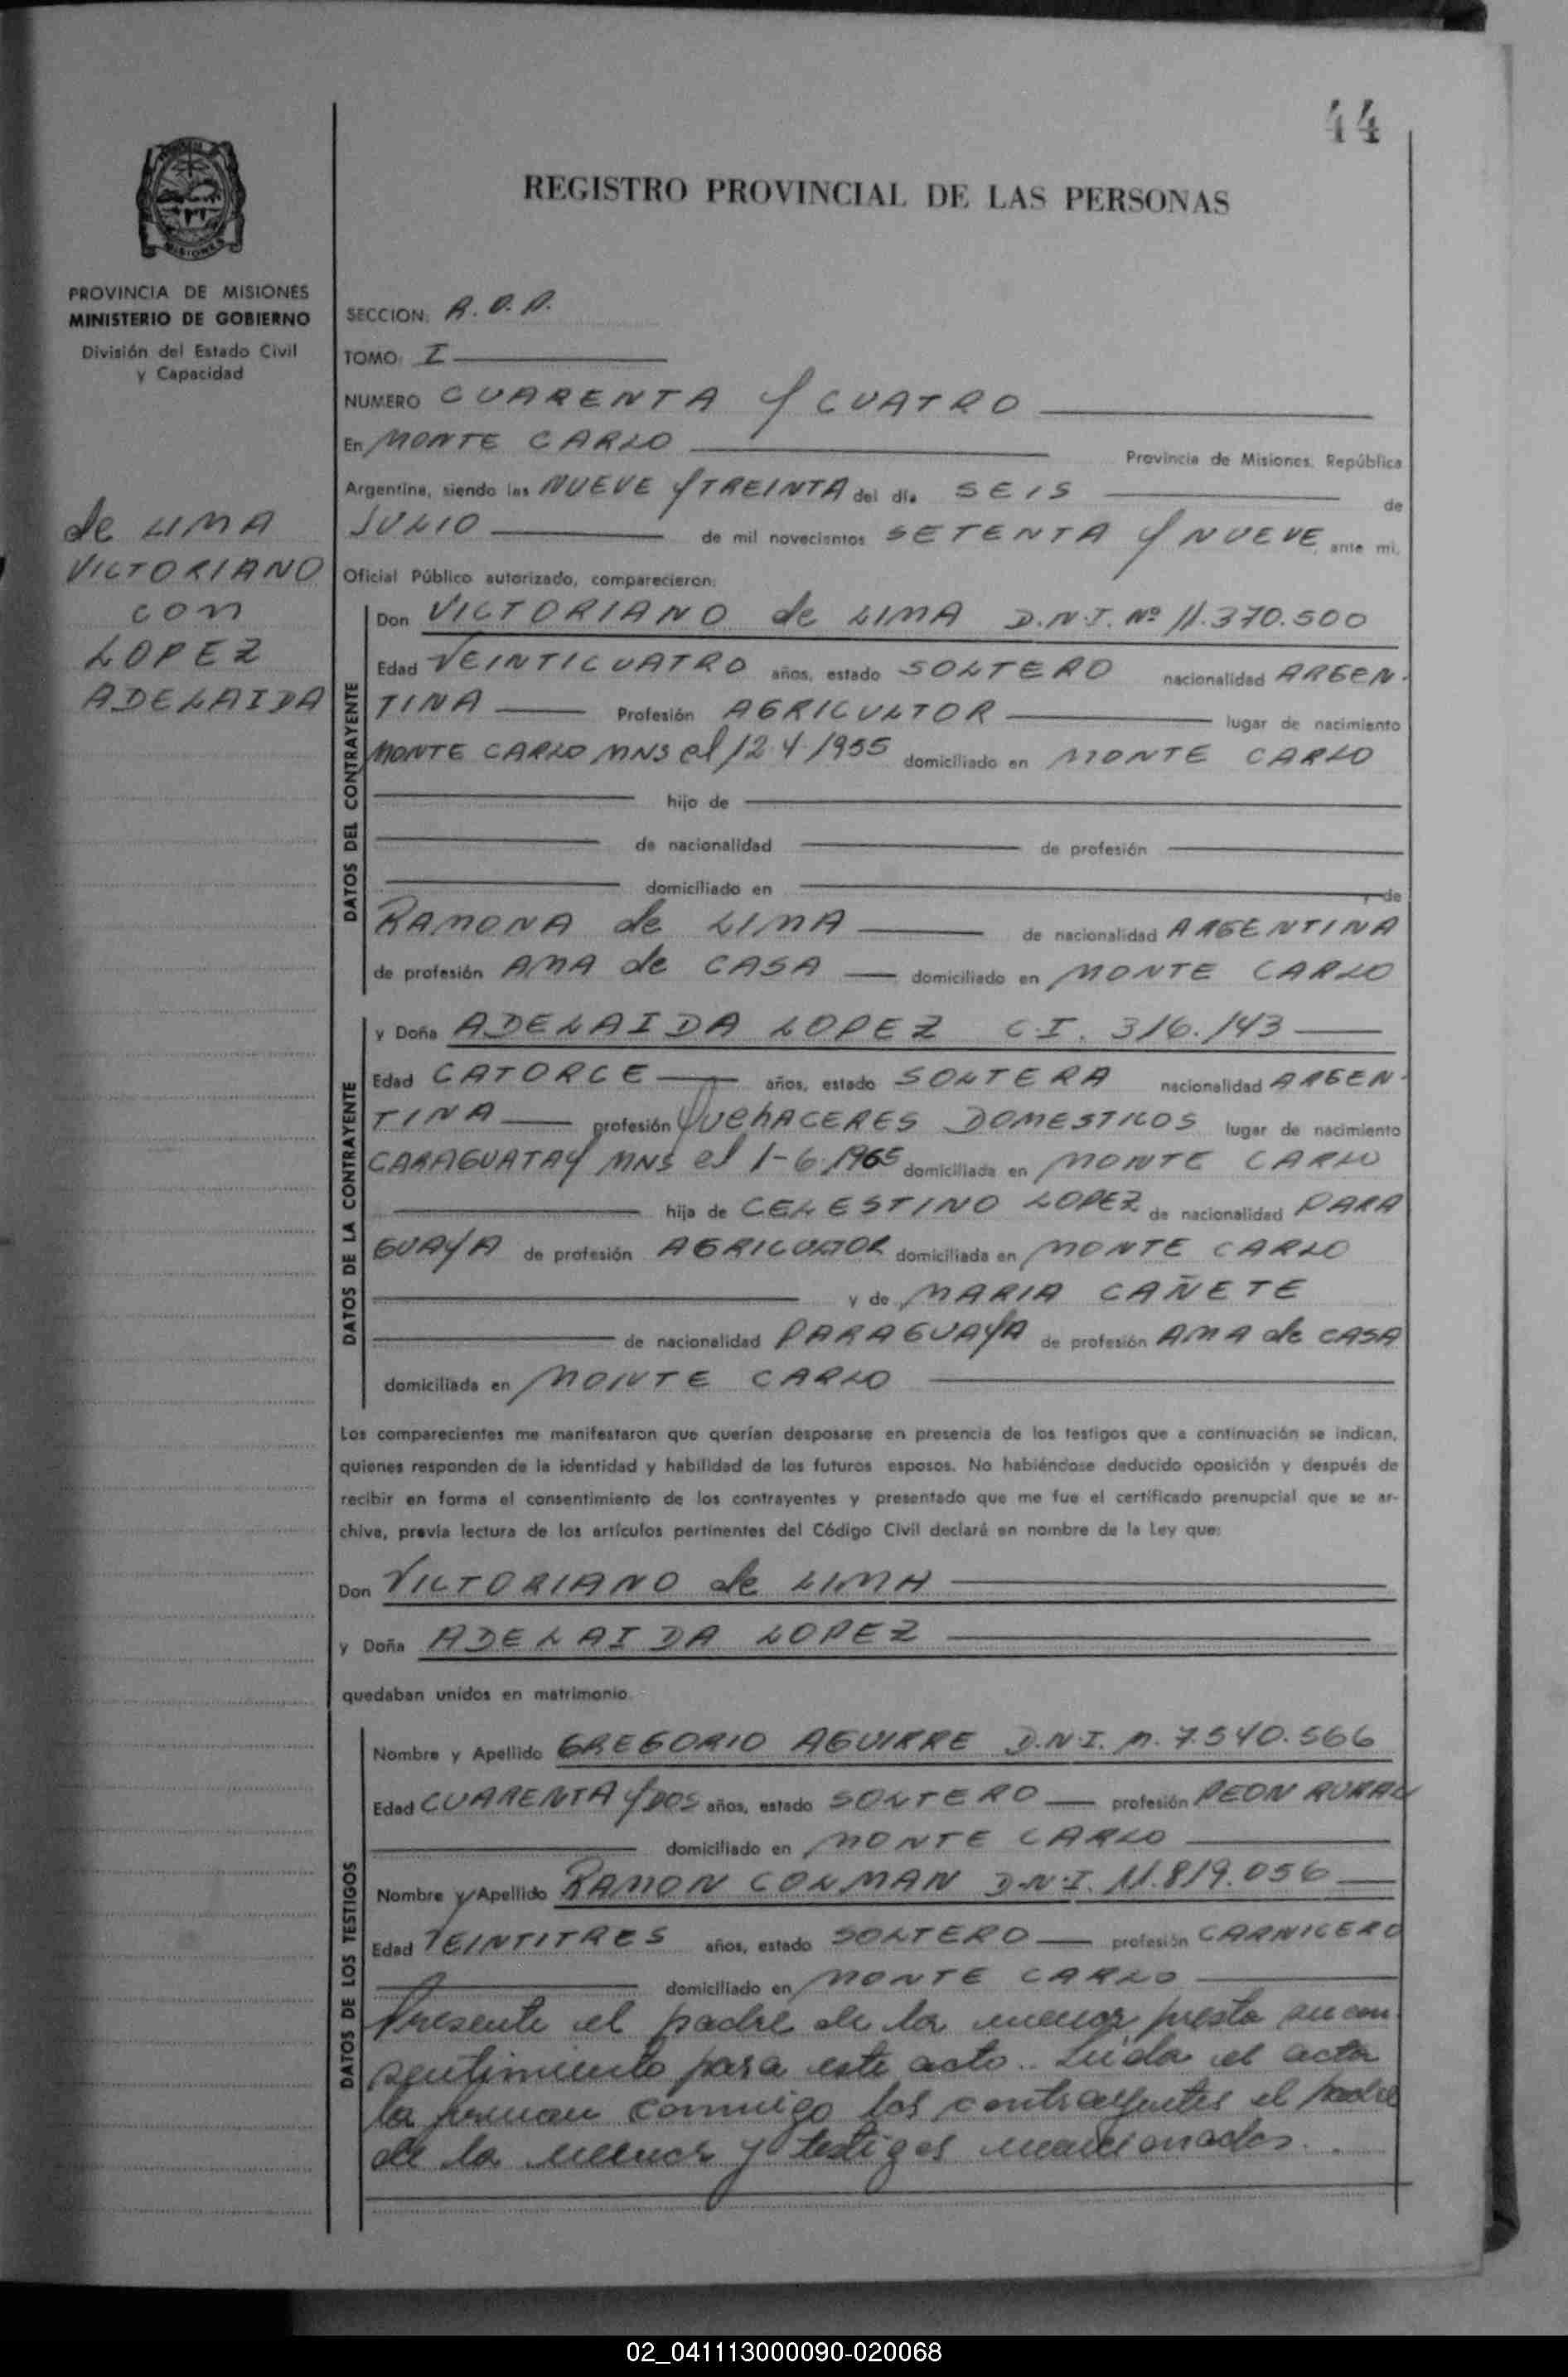 44
REGISTRO PROVINCIAL DE LAS PERSONAS
MISIONES
PROVINCIA DE MISIONES
MINISTERIO DE GOBIERNO
División del Estado Civil
y Capacidad
de LIMA
VICTORIANO
con
LOPEZ
ADELAIDA
SECCION:
TOMO: I
NUMERO CUARENTA Y CUATRO
En MONTE CARLO Provincia de Misiones, República
Argentina, siendo las NUEVE Y TREINTA del día SEIS de
JULIO de mil novecientos SETENTA Y NUEVE, ante mí,
Oficial Público autorizado, comparecieron:
DATOS DEL CONTRAYENTE
Don VICTORIANO de LIMA D.N.I. Nº 11.370.500
Edad VEINTICUATRO años, estado SOLTERO nacionalidad ARGEN-
TINA Profesión AGRICULTOR lugar de nacimiento
MONTE CARLO MNS el 12-4-1955 domiciliado en MONTE CARLO
hijo de
de nacionalidad de profesión
domiciliado en y de
RAMONA de LIMA de nacionalidad ARGENTINA
de profesión AMA de CASA domiciliado en MONTE CARLO
DATOS DE LA CONTRAYENTE
y Doña ADELAIDA LOPEZ C.I. 316.143
Edad CATORCE años, estado SOLTERA nacionalidad ARGEN-
TINA profesión QUEhACERES DOMESTICOS lugar de nacimiento
CARAGUATAY MNS el 1-6-1965 domiciliada en MONTE CARLO
hija de CELESTINO LOPEZ de nacionalidad PARA
GUAYA de profesión AGRICULTOR domiciliada en MONTE CARLO
y de MARIA CAÑETE
de nacionalidad PARAGUAYA de profesión AMA de CASA
domiciliada en MONTE CARLO
Los comparecientes me manifestaron que querían desposarse en presencia de los testigos que a continuación se indican,
quienes responden de la identidad y habilidad de los futuros esposos. No habiéndose deducido oposición y después de
recibir en forma el consentimiento de los contrayentes y presentado que me fue el certificado prenupcial que se ar-
chiva, previa lectura de los artículos pertinentes del Código Civil declaré en nombre de la Ley que:
Don VICTORIANO de LIMA
y Doña ADELAIDA LOPEZ
quedaban unidos en matrimonio.
DATOS DE LOS TESTIGOS
Nombre y Apellido GREGORIO AGUIRRE D.N.I. n. 7.540.566
Edad CUARENTA Y DOS años, estado SOLTERO profesión PEON RURAL
domiciliado en MONTE CARLO
Nombre y Apellido RAMON COLMAN D.N.I. 11.819.056
Edad VEINTITRES años, estado SOLTERO profesión CARNICERO
domiciliado en MONTE CARLO
Presente el padre de la menor presta su con-
sentimiento para este acto. Leida el acta
la firman conmigo los contrayentes el padre
de la menor y testigos mencionados.
02_041113000090-020068